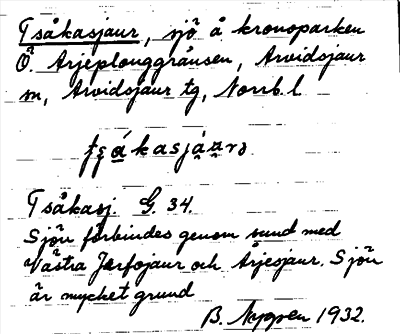 Tsåkasjaur, sjö å kronoparken
Ö. Arjeplouggränsen, Arvidsjaur
sn, Arvidsjaur tg, Norrb. l.
Tsåkasj. G. 34.
Sjön förbindes genom sund med
Västra Järfojaur och Årjesjaur. Sjön
är mycket grund
B. 1932.